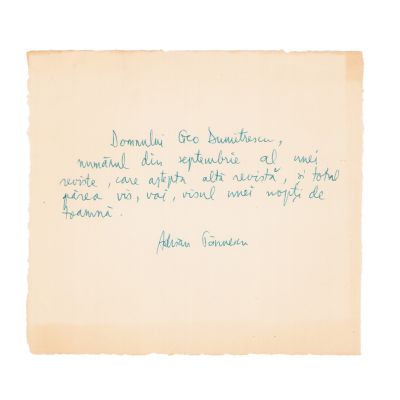 Domnului Geo Dumitrescu,
numărul din septembrie al unei
reviste, care aștepta altă revistă, și totul
părea vis, vai, visul unei nopți de
toamnă.
Adrian Păunescu